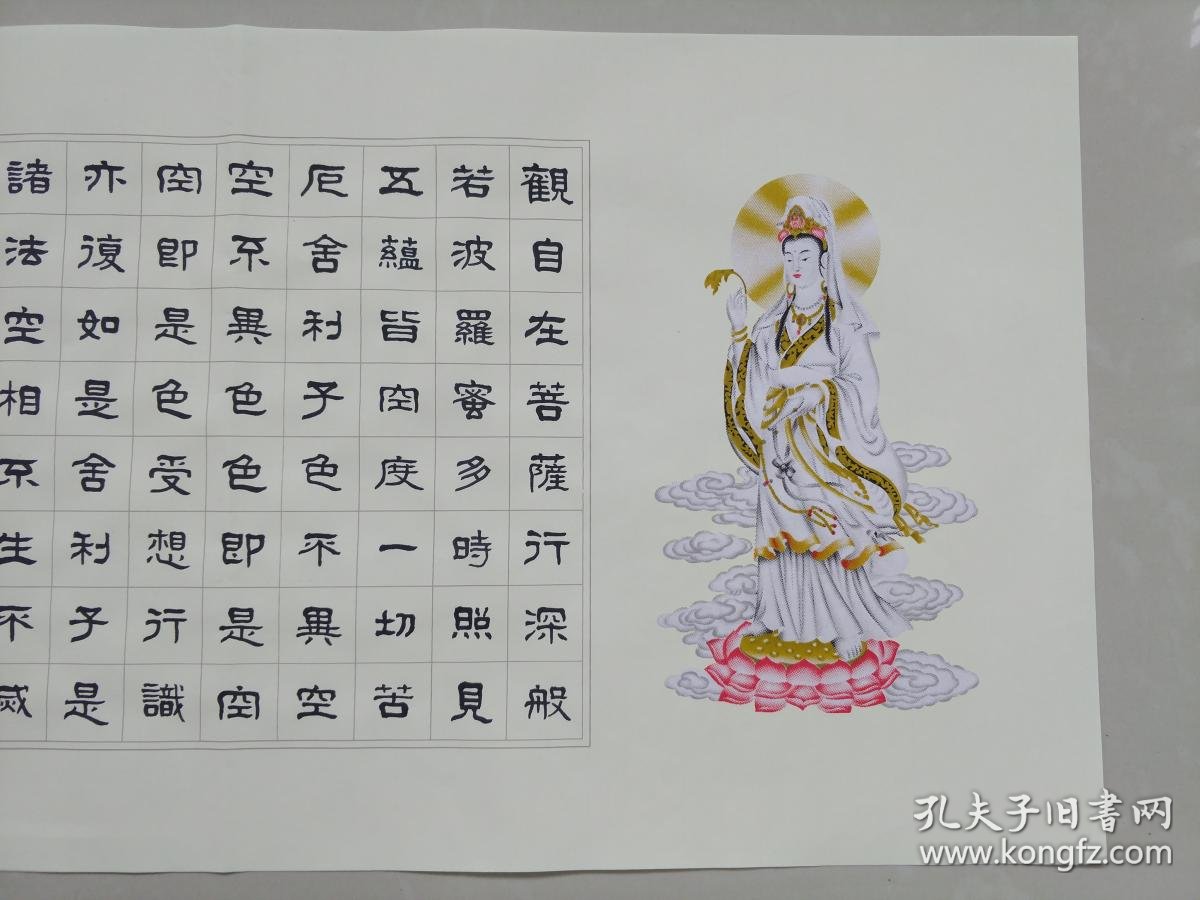 觀自在菩薩行深般
若波羅蜜多時照見
五蘊皆空度一切苦
厄舍利子色不異空
空不異色色即是空
空即是色受想行識
亦復如是舍利子是
諸法空相不生不滅
孔夫子旧書网
www.kongfz.com